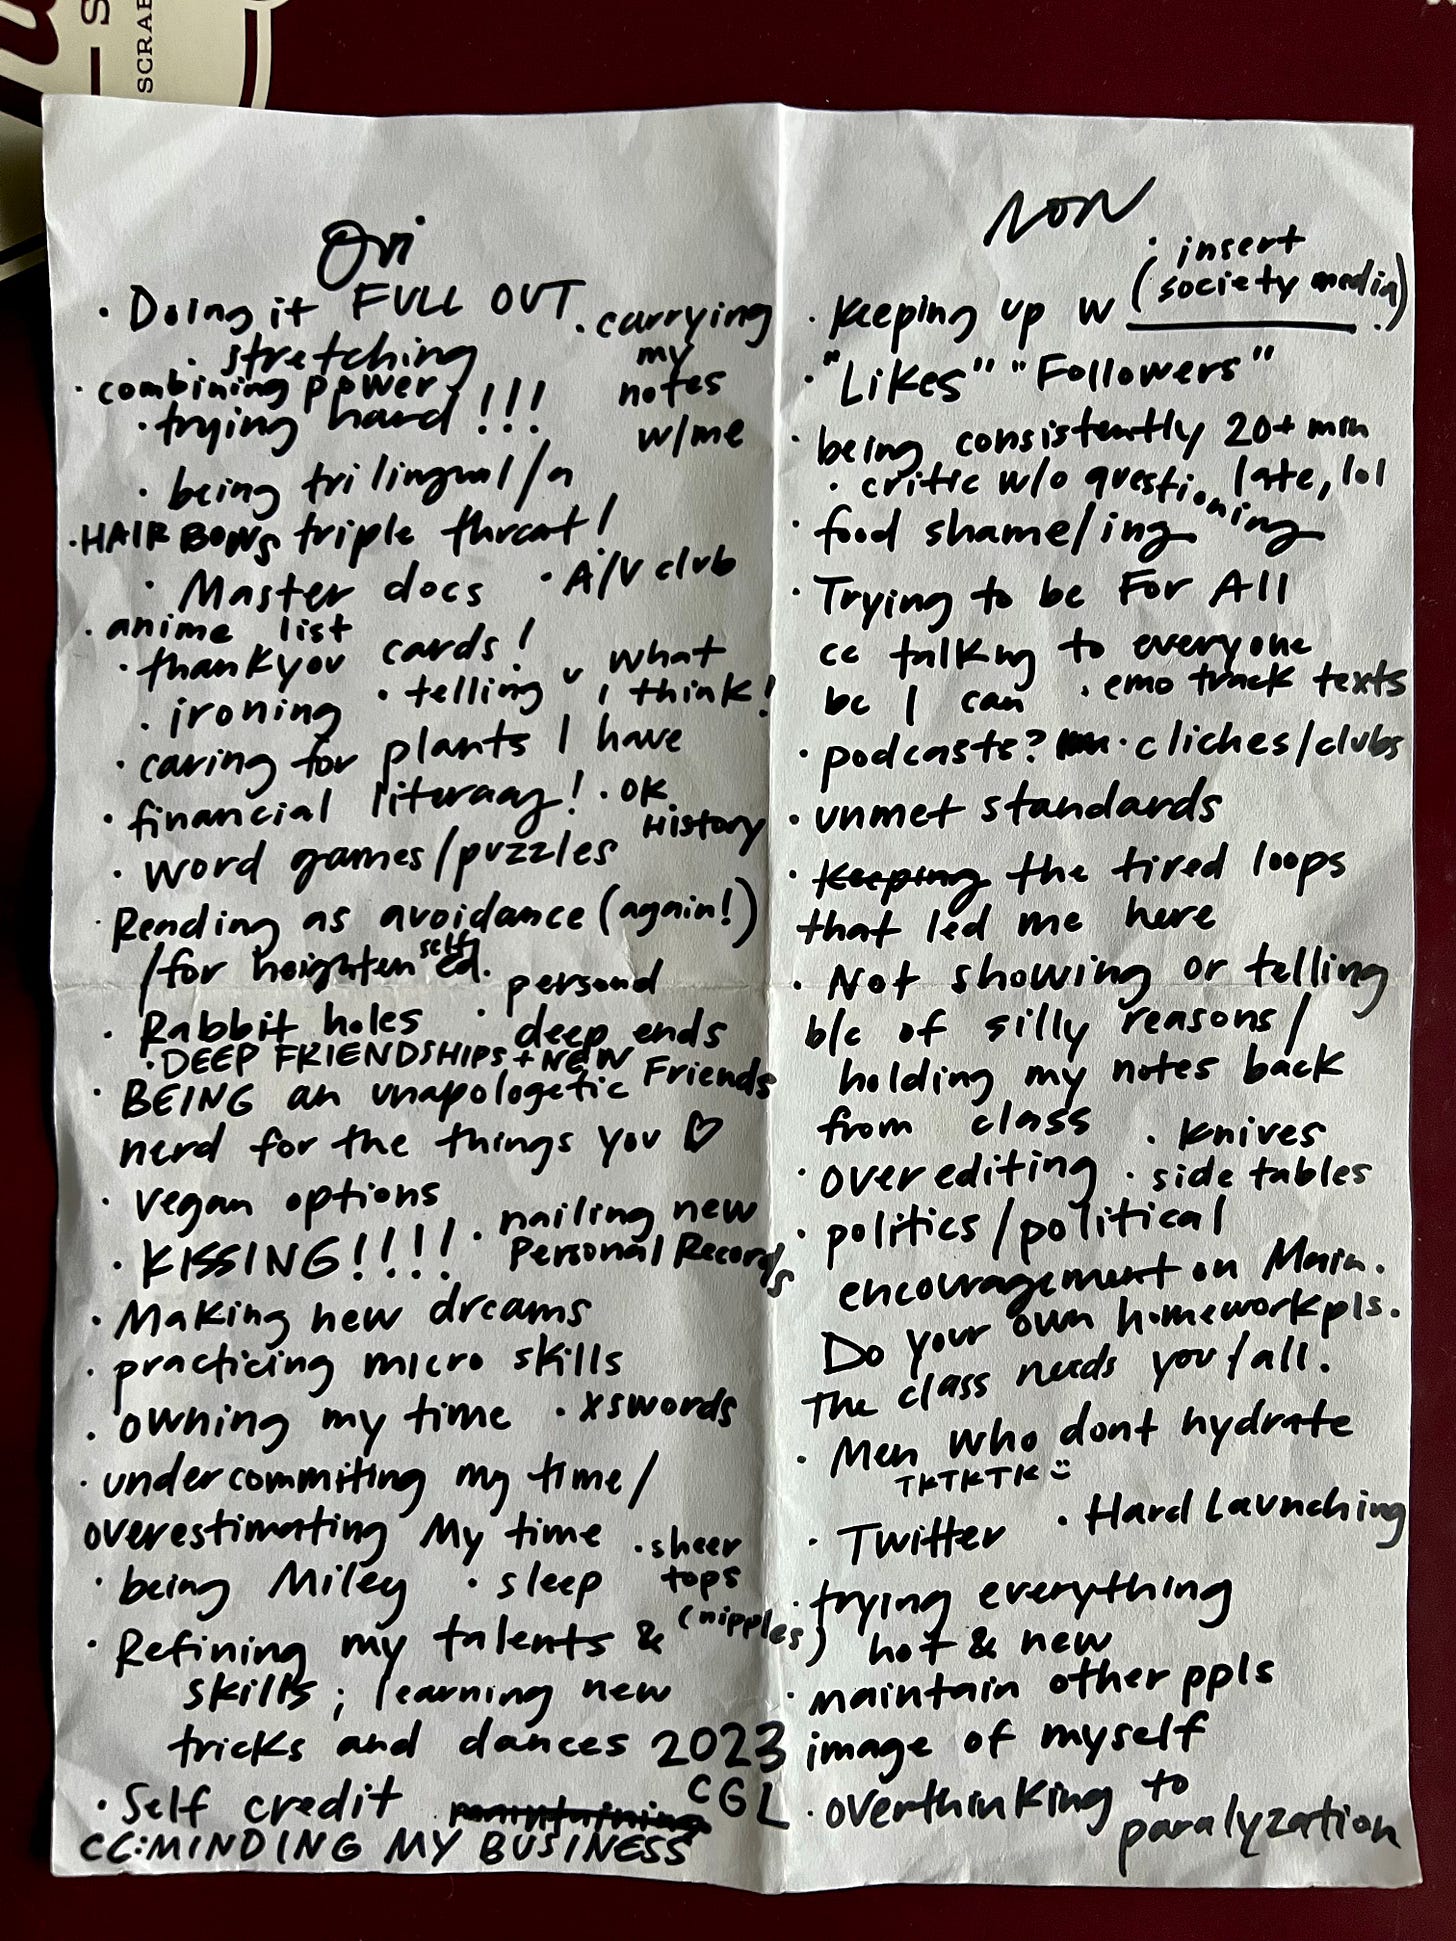 SCRAB
Oui
· Doing it FULL OUT
· carrying
my
notes
w/me
· stretching
· combining power
· trying hard!!!
· being trilingual/a
triple threat!
· HAIR BOWS
· Master docs
· A/V club
· anime list
· thankyou cards!
· telling u what
i think!
· ironing
· caring for plants I have
· financial literacy!
· OK
History
· word games/puzzles
· Reading as avoidance (again!)
/for heighten self ed.
· Rabbit holes
· personal
deep ends
· DEEP FRIENDSHIPS + NEW Friends
· BEING an unapologetic
nerd for the things you ♡
· vegan options
· KISSING!!!!
· nailing new
Personal Records
· Making new dreams
· practicing micro skills
· owning my time
· xswords
· undercommiting my time/
overestimating My time
· being Miley
· sleep
· sheer
tops
(nipples)
· Refining my talents &
skills; learning new
tricks and dances 2023
CGL
· Self credit
CC:MINDING MY BUSINESS
NON
· Keeping up w (insert
society media)
· "Likes" "Followers"
· being consistently 20+ min
late, lol
· critic w/o questioning
· food shame/ing
· Trying to be For All
cc talking to everyone
bc I can
· emo track texts
· podcasts?
· cliches/clubs
· unmet standards
· Keeping the tired loops
that led me here
· Not showing or telling
b/c of silly reasons/
holding my notes back
from class
· knives
· over editing
· side tables
· politics/political
encouragement on Main.
Do your own homework pls.
The class needs you/all.
· Men who dont hydrate
TKTKTK
· Twitter
· Hard Launching
· trying everything
hot & new
· maintain other ppls
image of myself
· overthinking to
paralyzation